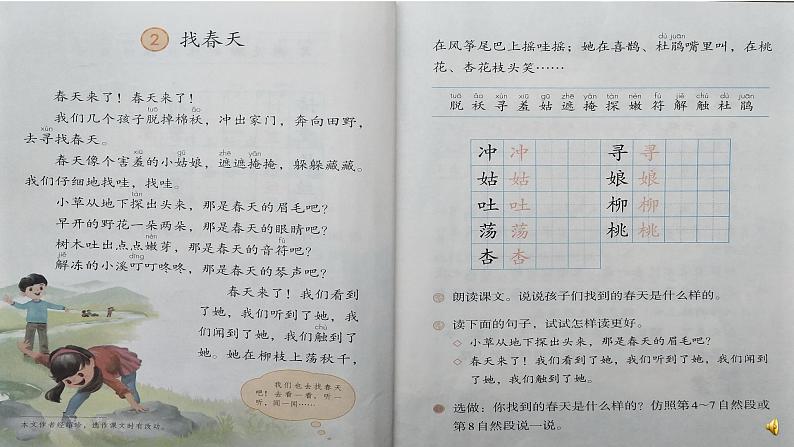 2 找春天
春天来了！春天来了！
我们几个孩子脱掉棉袄，冲出家门，奔向田野，
去寻找春天。
春天像个害羞的小姑娘，遮遮掩掩，躲躲藏藏。
我们仔细地找哇，找哇。
小草从地下探出头来，那是春天的眉毛吧？
早开的野花一朵两朵，那是春天的眼睛吧？
树木吐出点点嫩芽，那是春天的音符吧？
解冻的小溪叮叮咚咚，那是春天的琴声吧？
春天来了！我们看到
了她，我们听到了她，我
们闻到了她，我们触到了
她。她在柳枝上荡秋千，
我们也去找春天
吧！去看一看，听一
听，闻一闻……
本文作者经绪珍，选作课文时有改动。
在风筝尾巴上摇哇摇；她在喜鹊、杜鹃嘴里叫，在桃
花、杏花枝头笑……
tuō ǎo xún xiū gū zhē yǎn tàn nèn fú jiě chù dù juān
脱 袄 寻 羞 姑 遮 掩 探 嫩 符 解 触 杜 鹃
冲 冲 寻 寻
姑 姑 娘 娘
吐 吐 柳 柳
荡 荡 桃 桃
杏 杏
朗读课文。说说孩子们找到的春天是什么样的。
读下面的句子，试试怎样读更好。
◇ 小草从地下探出头来，那是春天的眉毛吧？
◇ 春天来了！我们看到了她，我们听到了她，我们闻到
了她，我们触到了她。
选做：你找到的春天是什么样的？仿照第4~7自然段或
第8自然段说一说。